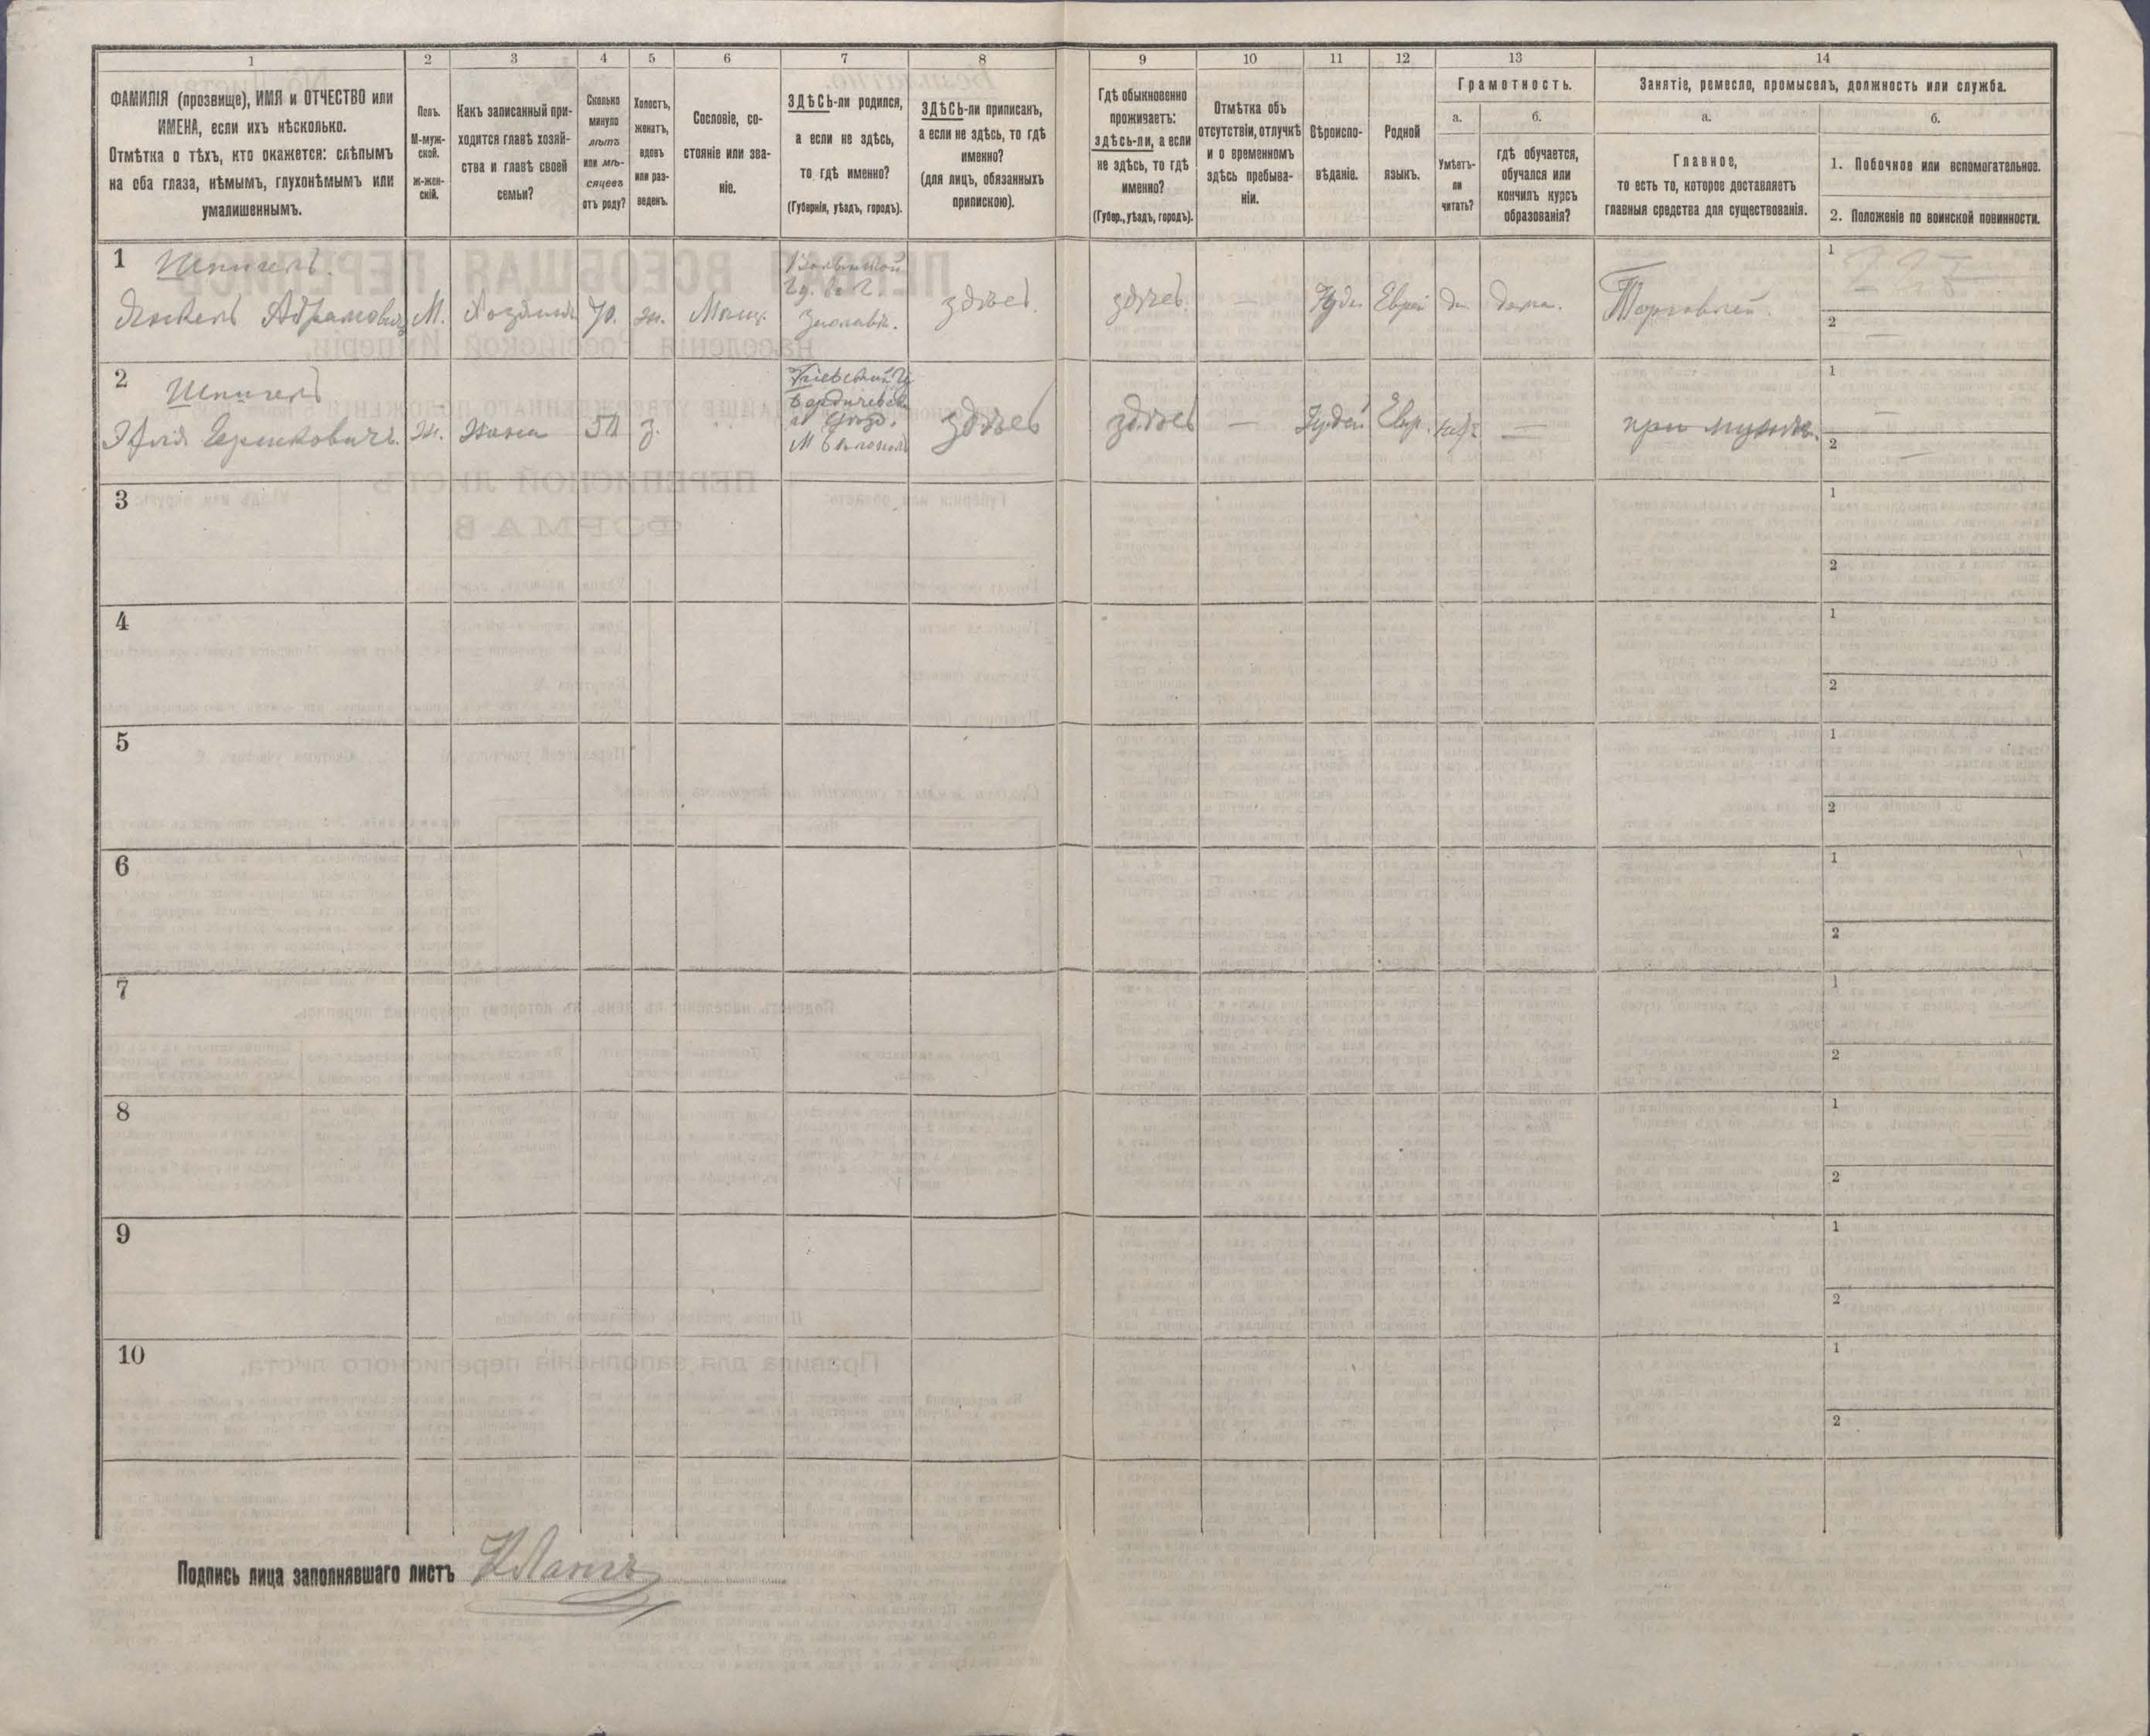 1
2
3
4
5
6
7
8
9
10
11
12
13
14
ФАМИЛІЯ (прозвище), ИМЯ и ОТЧЕСТВО или
ИМЕНА, если ихъ нѣсколько.
Отмѣтка о тѣхъ, кто окажется: слѣпымъ
на оба глаза, нѣмымъ, глухонѣмымъ или
умалишеннымъ.
Полъ.
М-муж-
ской.
ж-жен-
скій.
Какъ записанный при-
ходится главѣ хозяй-
ства и главѣ своей
семьи?
Сколько
минуло
лѣтъ
или мѣ-
сяцевъ
отъ роду?
Холостъ,
женатъ,
вдовъ
или раз-
веденъ.
Сословіе, со-
стояніе или зва-
ніе.
ЗДѢСЬ-ли родился,
а если не здѣсь,
то гдѣ именно?
(Губернія, уѣздъ, городъ).
ЗДѢСЬ-ли приписанъ,
а если не здѣсь, то гдѣ
именно?
(для лицъ, обязанныхъ
припискою).
Гдѣ обыкновенно
проживаетъ:
здѣсь-ли, а если
не здѣсь, то гдѣ
именно?
(Губер., уѣздъ, городъ).
Отмѣтка объ
отсутствіи, отлучкѣ
и о временномъ
здѣсь пребыва-
ніи.
Вѣроиспо-
вѣданіе.
Родной
языкъ.
Грамотность.
а.
Умѣетъ-
ли
читать?
б.
гдѣ обучается,
обучался или
кончилъ курсъ
образованія?
Занятіе, ремесло, промыселъ, должность или служба.
а.
Главное,
то есть то, которое доставляетъ
главныя средства для существованія.
б.
1. Побочное или вспомогательное.
2. Положеніе по воинской повинности.
1
Шпигель
Абрамовичъ
М.
Хозяинъ
70.
ж.
Мѣщ.
здѣсь
здѣсь
—
Іуде.
Еврей
да
дома.
Торговлей.
1
2
—
2
Шпигель
Гершковичъ.
Ж.
Жена
50
з.
здѣсь
здѣсь
—
Іудей
Евр.
нѣт
—
при мужѣ.
1
—
2
—
3
1
2
4
1
2
5
1
2
6
1
2
7
1
2
8
1
2
9
1
2
10
1
2
Подпись лица заполнявшаго листъ